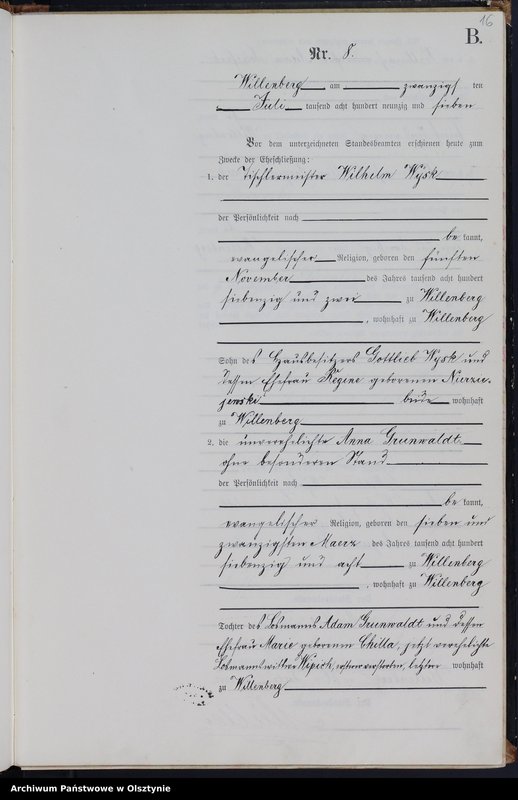 16
B.
Nr. 8.
Willenberg am zwanzigsten
Juli tausend acht hundert neunzig und sieben
Vor dem unterzeichneten Standesbeamten erschienen heute zum
Zwecke der Eheschließung:
1. der Tischlermeister Wilhelm Wysk
der Persönlichkeit nach
be kannt,
evangelischer Religion, geboren den fünften
November des Jahres tausend acht hundert
siebenzig und zwei zu Willenberg
, wohnhaft zu Willenberg
Sohn des Hausbesitzers Gottlieb Wysk und
dessen Ehefrau Regine geborenen
beide wohnhaft
zu Willenberg
2. die unverehelichte Anna Grunwaldt
ohne besonderen Stand
der Persönlichkeit nach
be kannt,
evangelischer Religion, geboren den sieben und
zwanzigsten Maerz des Jahres tausend acht hundert
siebenzig und acht zu Willenberg
, wohnhaft zu Willenberg
Tochter des Losmanns Adam Grunwaldt und dessen
Ehefrau Marie geborenen Chilla, jetzt verehelichte
Losmannswittwe, ersterer verstorben, letztere wohnhaft
zu Willenberg
Archiwum Państwowe w Olsztynie